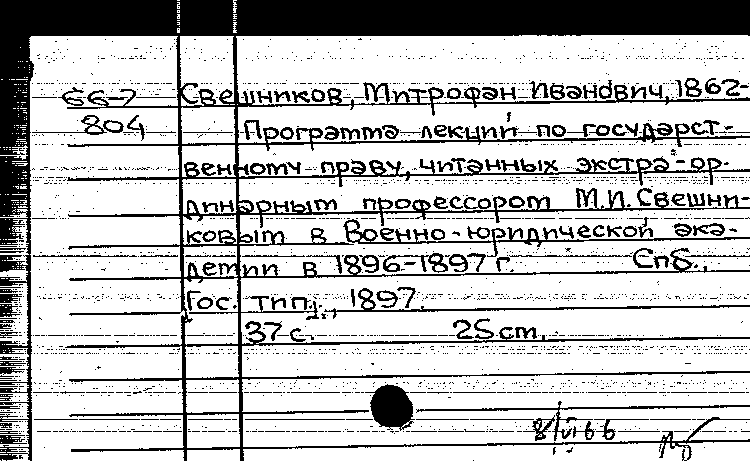 66-7 Свешников, Митрофан Иванович, 1862-
804 Программа лекций по государст-
венному праву, читанных экстра-ор-
динарным профессором М.И. Свешни-
ковым в Военно-юридической ака-
демии в 1896-1897 г. Спб.,
Гос. тип., 1897.
37 с. 25 cm.
8/VI 66